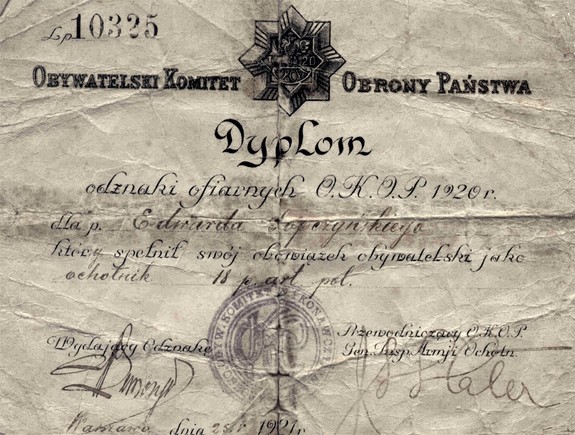 Lp 10325
OBYWATELSKI KOMITET OBRONY PAŃSTWA
1920
Dyplom
odznaki ofiarnych O.K.O.P. 1920 r.
dla p. Edwarda Łopczyńskiego
który spełnił swój obowiązek obywatelski jako
ochotnik 18 p. art. pol.
Wydający Odznakę
Przewodniczący O.K.O.P.
Gen. Insp. Armji Ochotn.
Haler
Warszawa dnia 1921 r.